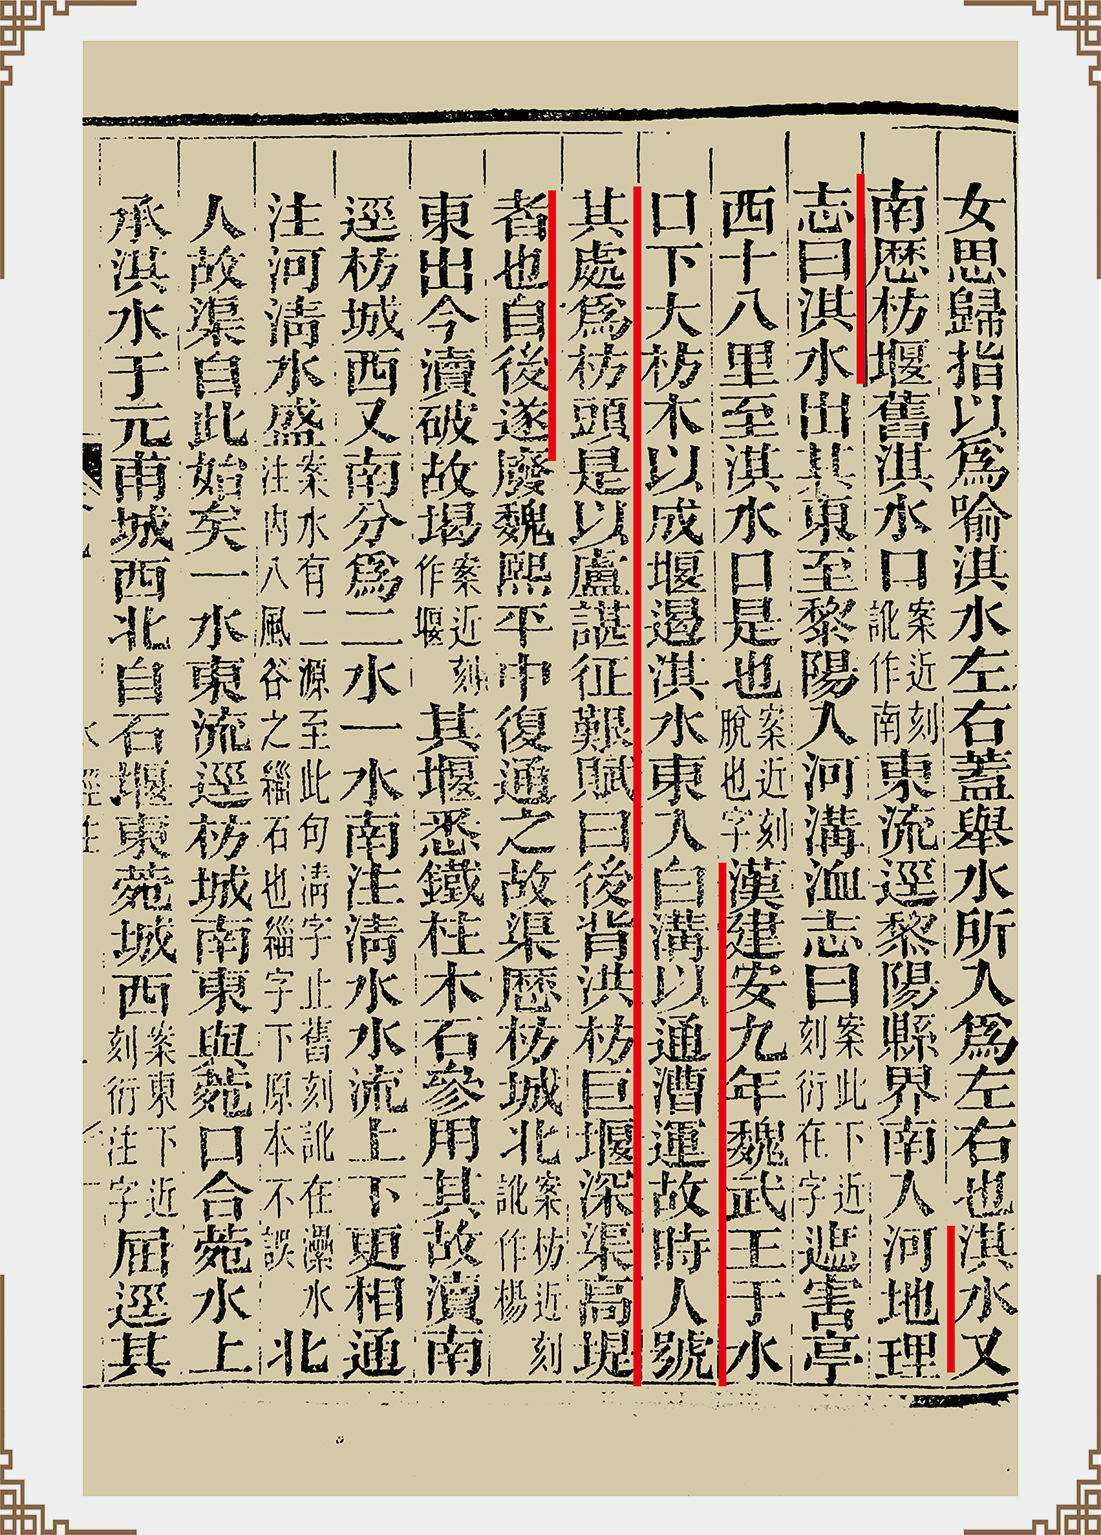 女思歸指以爲喻淇水左右蓋舉水所入爲左右也淇水又
南歷枋堰舊淇水口案近刻訛作南東流逕黎陽縣界南入河地理
志曰淇水出共東至黎陽入河溝洫志曰案此下近刻衍在字遮害亭
西十八里至淇水口是也案近刻脫也字漢建安九年魏武王于水
口下大枋木以成堰遏淇水東入白溝以通漕運故時人號
其處爲枋頭是以盧諶征艱賦曰後背洪枋巨堰深渠高堤
者也自後遂廢魏熙平中復通之故渠歷枋城北案枋近刻訛作楊
東出今瀆破故堨案近刻作堰其堰悉鐵柱木石參用其故瀆南
逕枋城西又南分爲二水一水南注清水水流上下更相通
注河清水盛案水有二源至此句清字止舊刻訛在灤水注內八風谷之緇石也緇字下原本不誤北
入故渠自此始矣一水東流逕枋城南東與菀口合菀水上
承淇水于元甫城西北自石堰東菀城西案東下近刻衍注字屈逕其